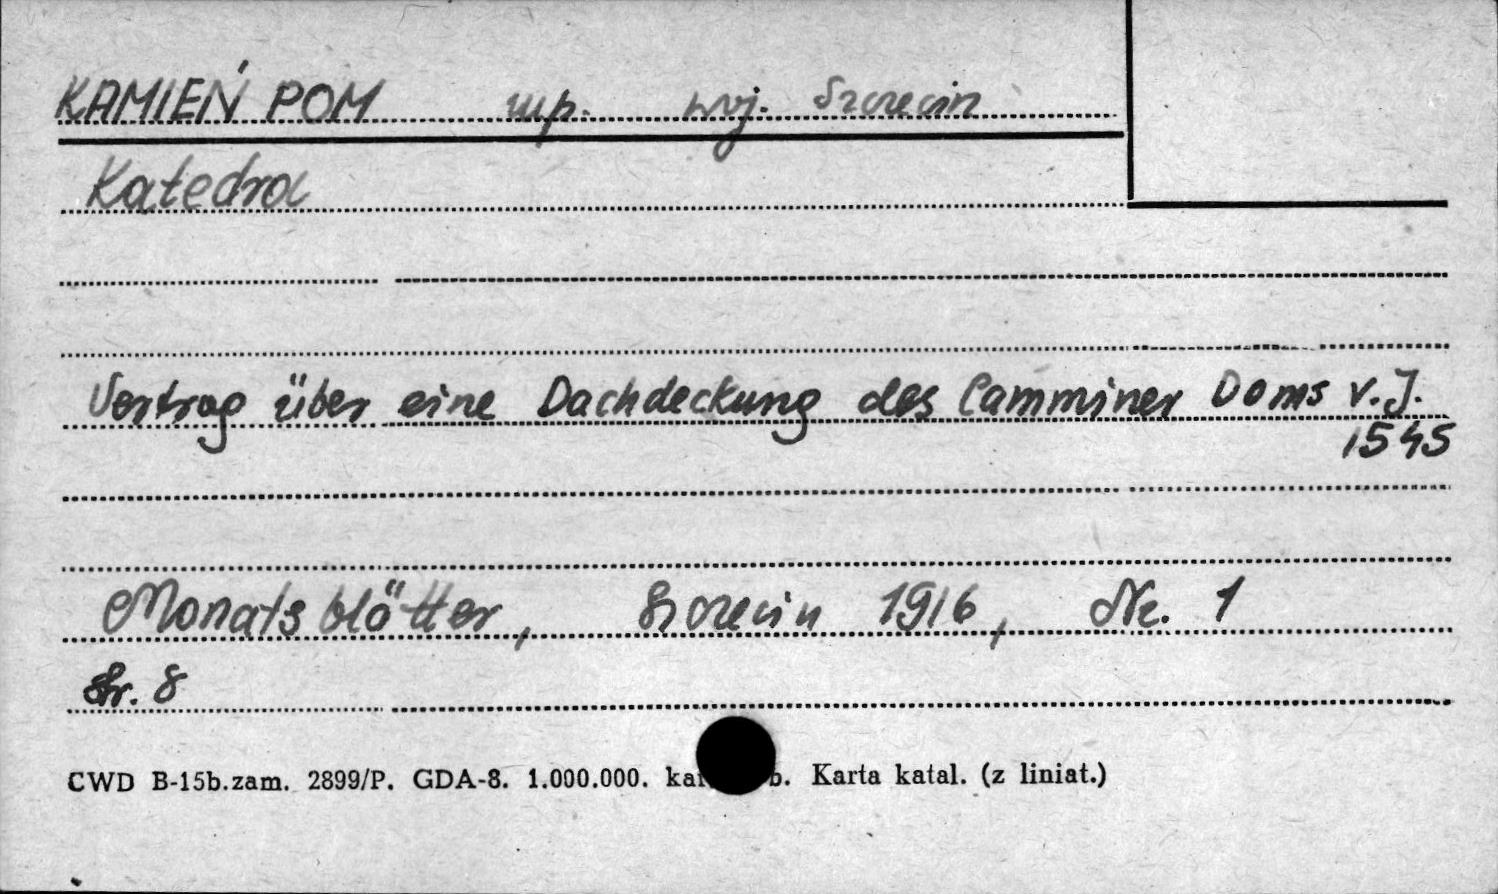 KAMIEŃ POM mp. woj. Szczecin
Katedra
Vertrag über eine Dachdeckung des Camminer Doms v.J.
1545
Monatsblätter, Szczecin 1916, Nr. 1
Str. 8
CWD B-15b.zam. 2899/P. GDA-8. 1.000.000. Karta katal. (z liniat.)